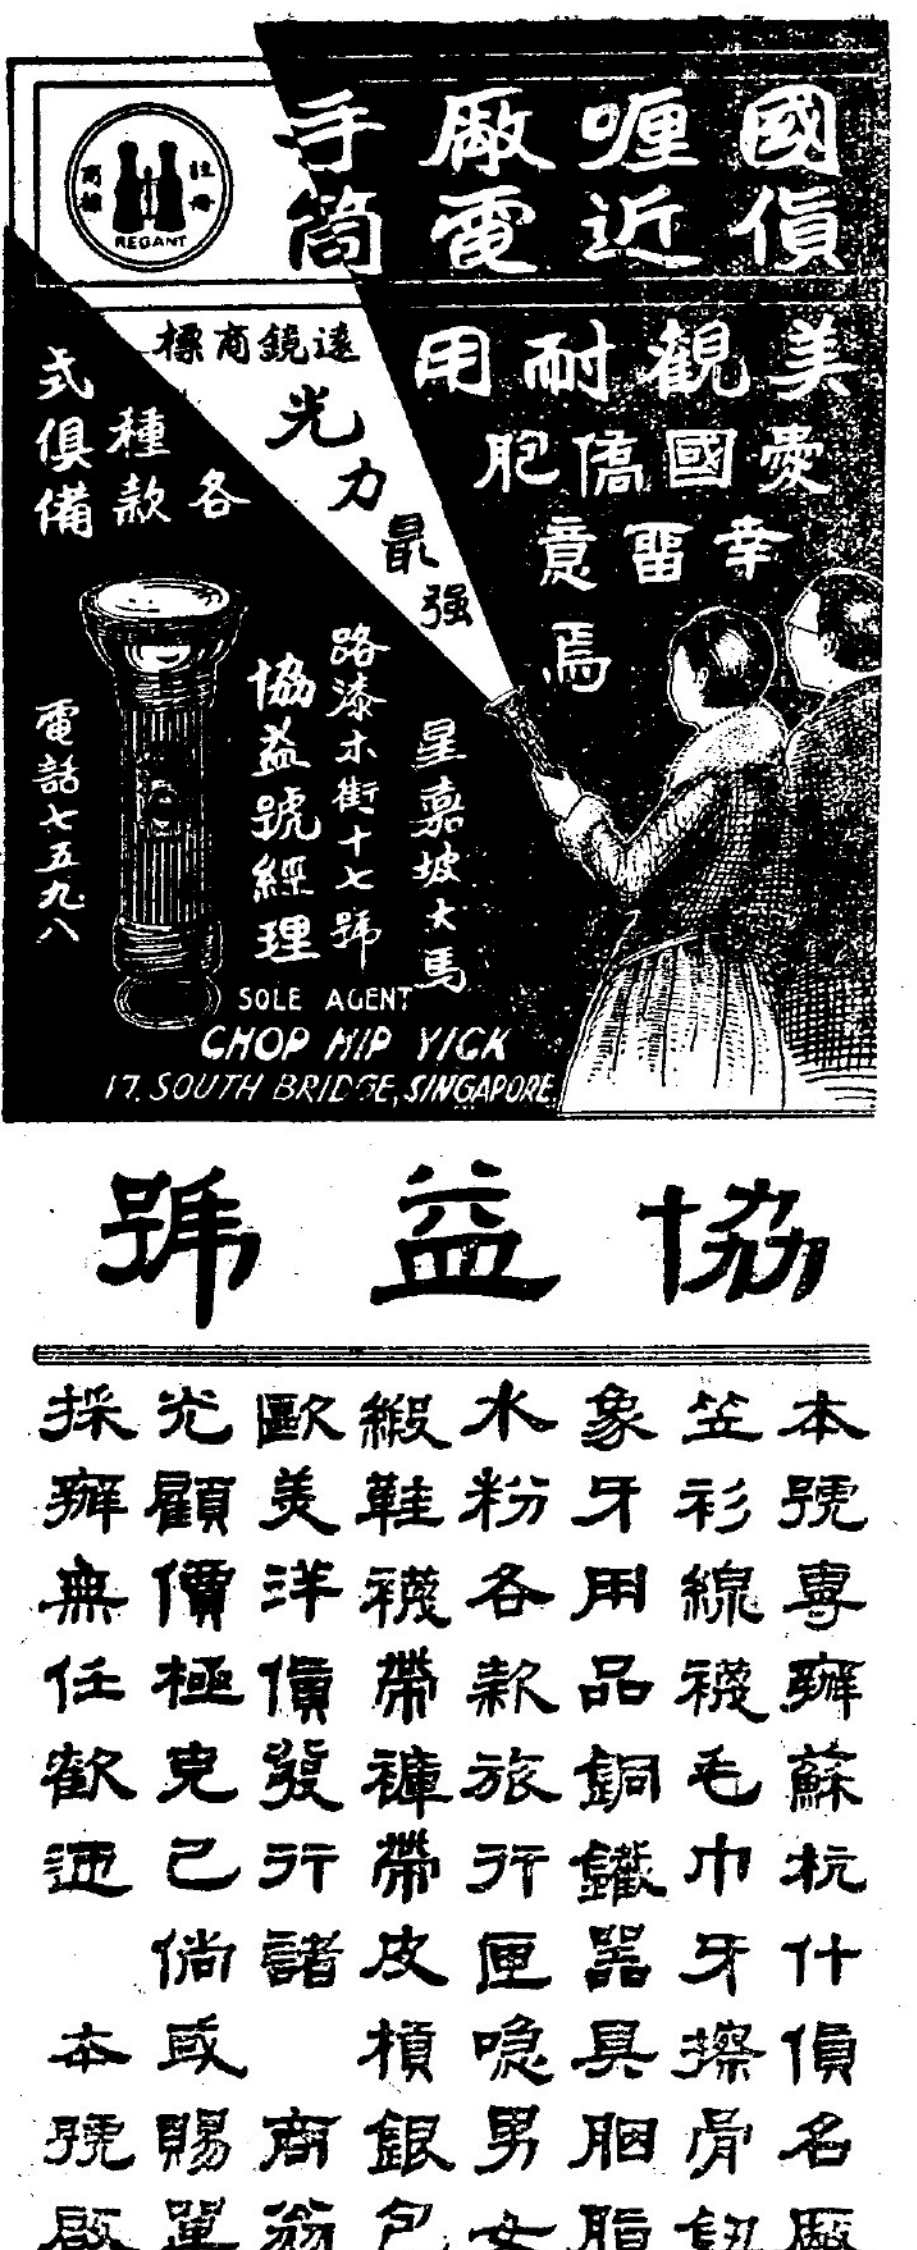 國貨
喱近
廠電
手筒
註冊
商標
REGANT
遠鏡商標
光力最强
美觀耐用
愛國僑胞
幸畱意
焉
各
種款
式俱備
星嘉坡大馬
路漆木街十七號
協益號經理
電話七五九八
SOLE AGENT
CHOP HIP YICK
17. SOUTH BRIDGE, SINGAPORE.
協益號
本號專辦蘇杭什貨名廠
笠衫線襪毛巾牙擦骨鈕
象牙用品銅鐵器具胭脂
水粉各款旅行匣喼男女
緞鞋襪帶褲帶皮槓銀包
歐美洋貨發行諸 商翁
光顧價極克己倘或賜單
採辦無任歡迎 本號啟